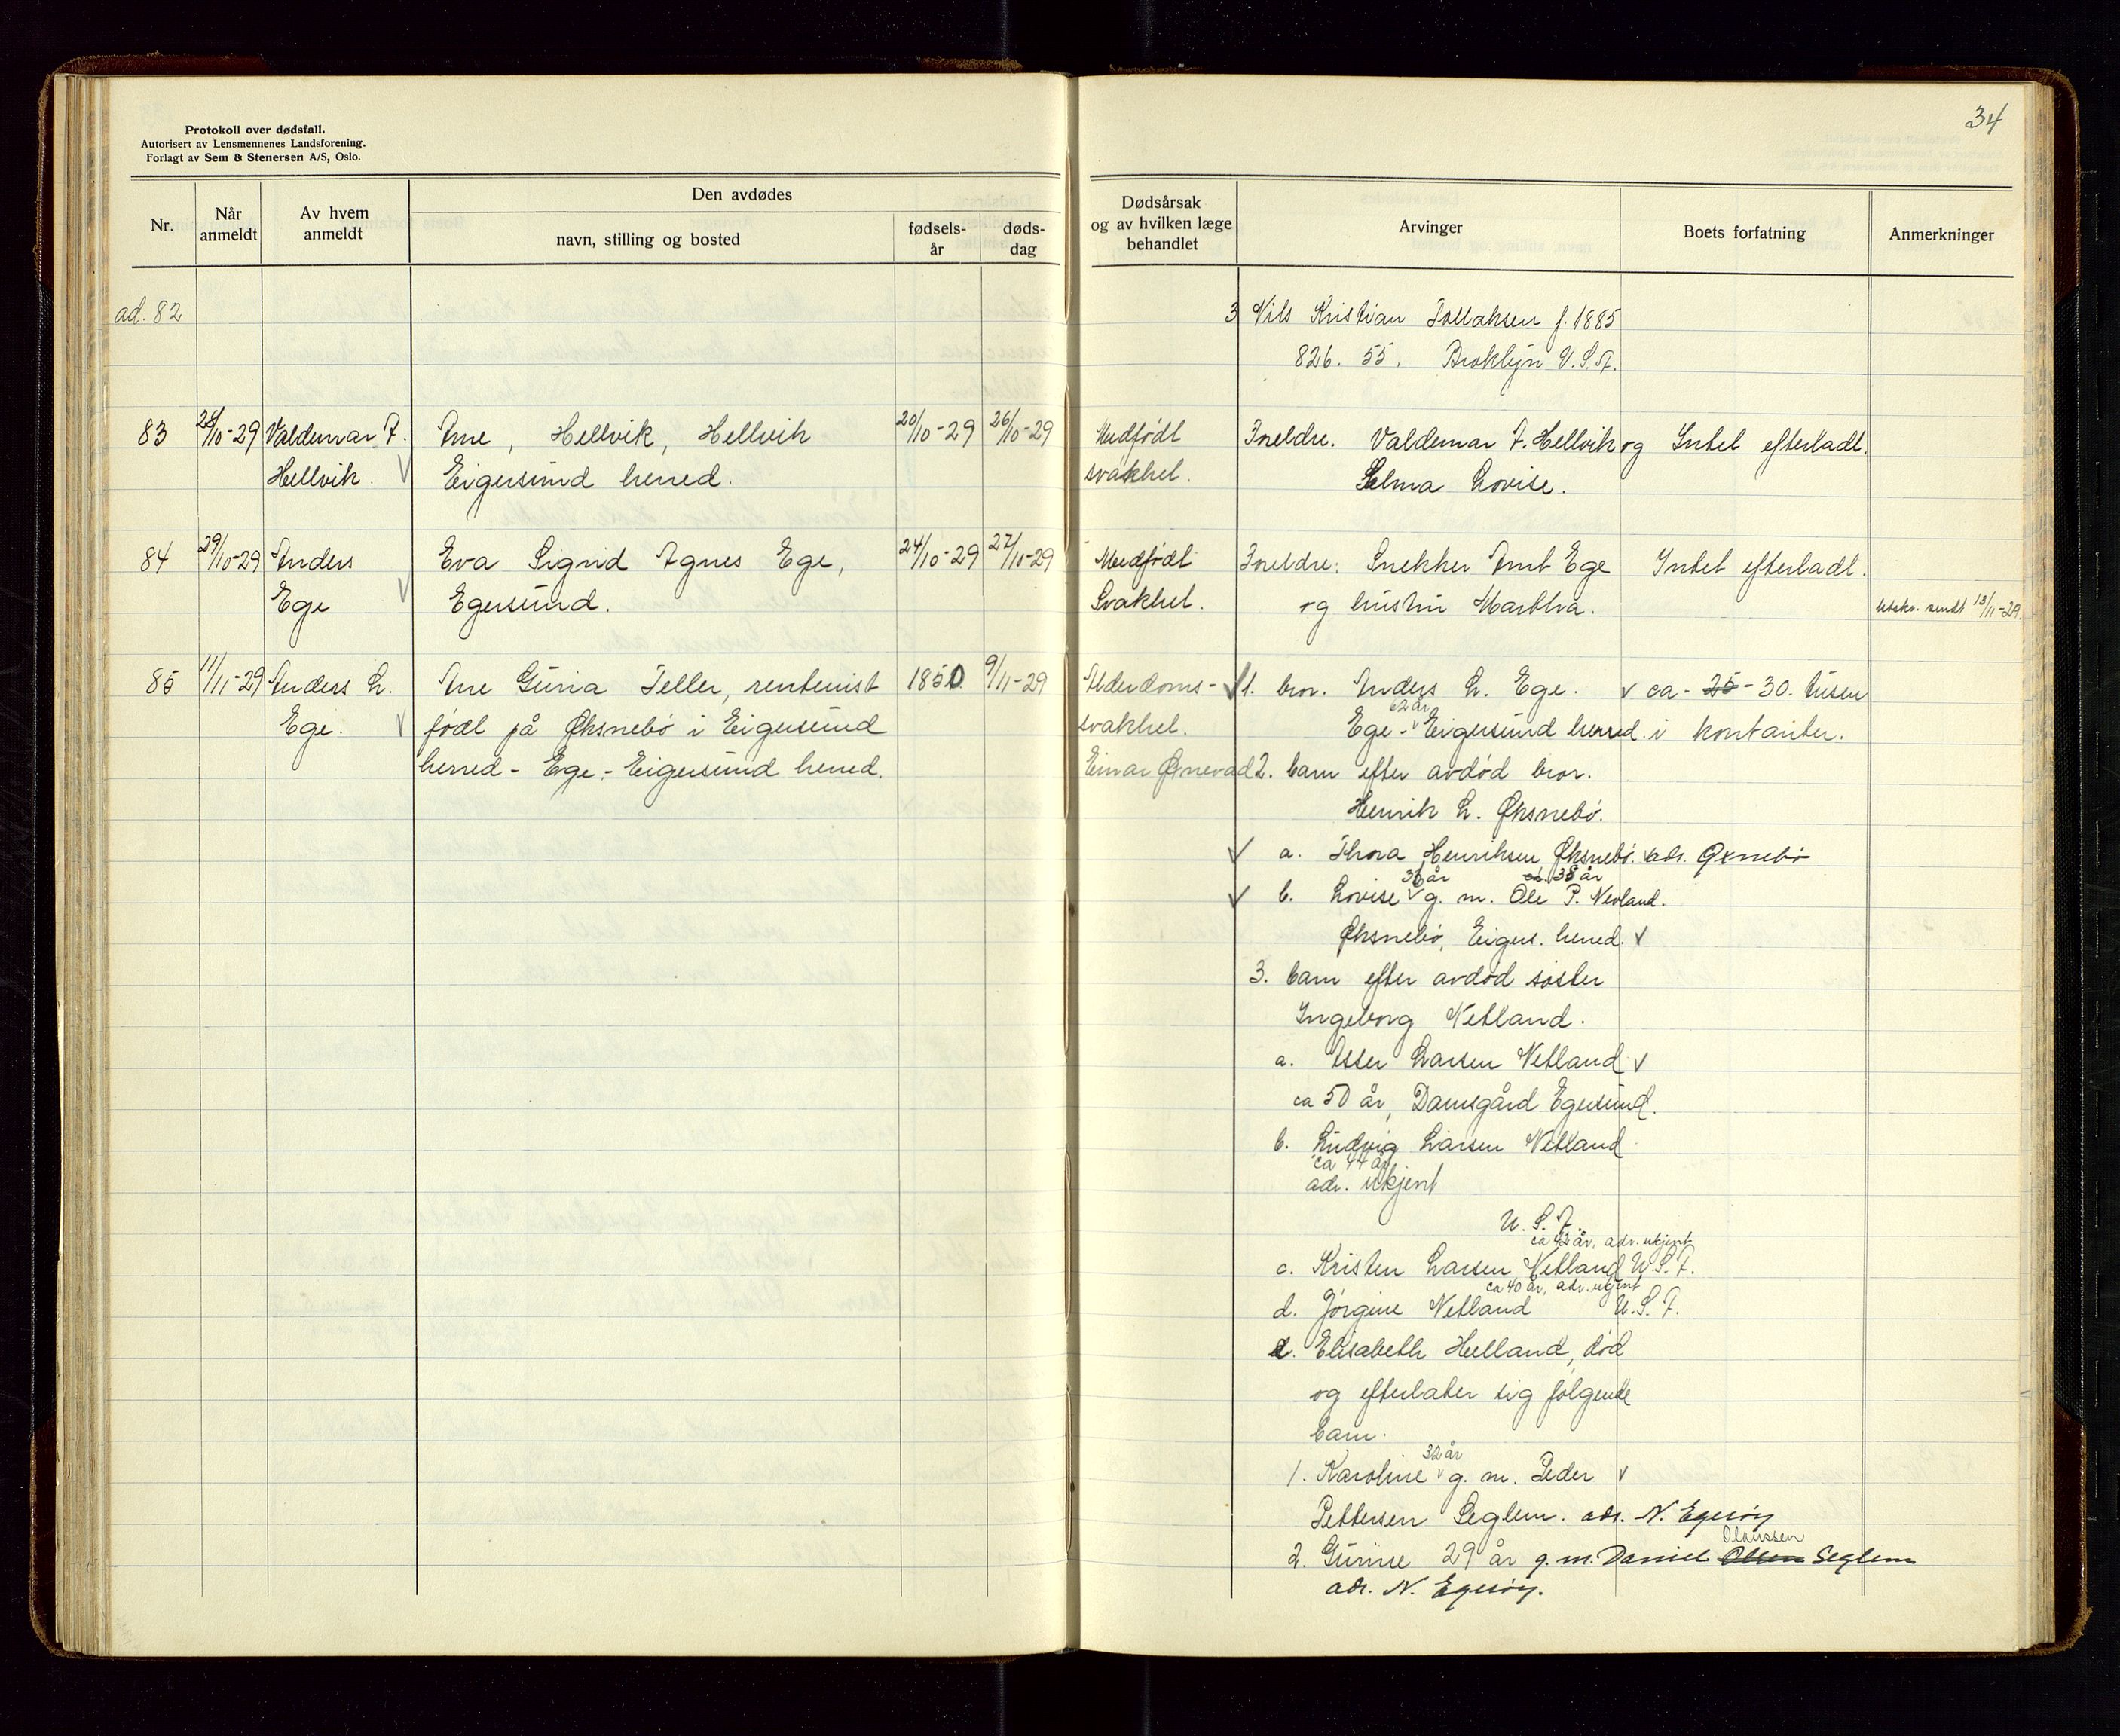 34
Protokoll over dødsfall.
Autorisert av Lensmennenes Landsforening.
Forlagt av Sem & Stenersen A/S, Oslo.
Nr.
Når anmeldt
Av hvem anmeldt
Den avdødes
navn, stilling og bosted
fødsels-år
døds-dag
Dødsårsak og av hvilken læge behandlet
Arvinger
Boets forfatning
Anmerkninger
ad. 82
3 Nils Kristian Tollaksen f. 1885
826. 55. Broklyn U.S.A.
83 28/10-29 Valdemar A. Ane, Hellvik, Hellvik 20/10-29 26/10-29 Medfødt Foreldre. Valdemar A. Hellvik og Intet efterladt.
Hellvik. Eigersund herred. svakhet. Selma Lovise.
84 29/10-29 Anders Eva Sigrid Agnes Ege, 24/10-29 27/11-29 Medfødt Foreldre: Snekker Arnt Ege Intet efterladt.
Ege Egersund. Svakhet. og hustru Marthea. utskr. sendt 13/11-29.
85 11/11-29 Anders L. Ane Guria Teller, rentenist 1850 9/11-29 Alderdoms- 1. bror. Anders L. Ege. ca - 25 - 30. tusen
62 år
Ege. født på Øksnebø i Eigersund svakhet. Ege - Eigersund herred. i kontanter.
herred - Ege - Eigersund herred. Einar Ørnevad 2. barn efter avdød bror.
Henrik L. Øksnebø.
a. Thora Henriksen Øksnebø. adr. Øxnebø
36 år 38 år
b. Lovise g. m. Ole P. Nevland.
Øksnebø, Eigers. herred.
3. barn efter avdød søster
Ingeborg Netland.
a. Asser Larsen Netland
ca 50 år, Damsgård Egersund.
b. Ludvig Larsen Netland
ca 44 år
adr. ukjent
U. S. A.
ca 42 år, adr. ukjent
c. Kristen Larsen Netland U. S. A.
ca 40 år, adr. ukjent
d. Jørgine Netland U. S. A.
e. Elisabeth Helland, død
og efterlater sig følgende
barn.
32 år
1. Karoline g. m. Peder
Pettersen Seglem. adr. N. Egerøy
Olaussen
2. Gurine 29 år g. m. Daniel Olsen Seglem
adr. N. Egerøy.